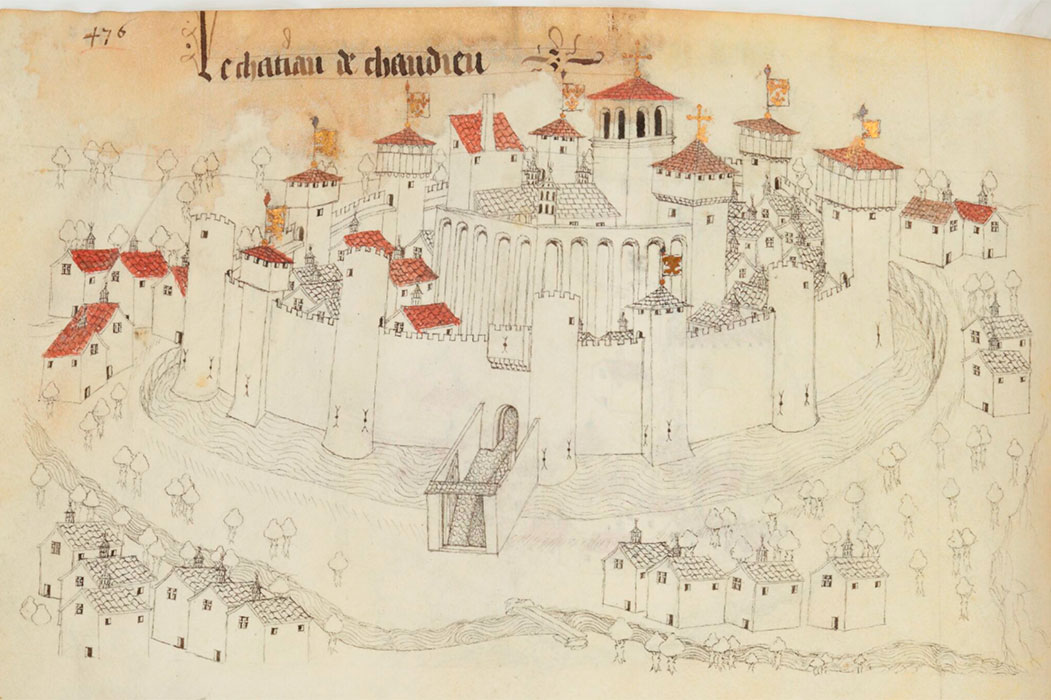 476
Le chatiau de chandieu